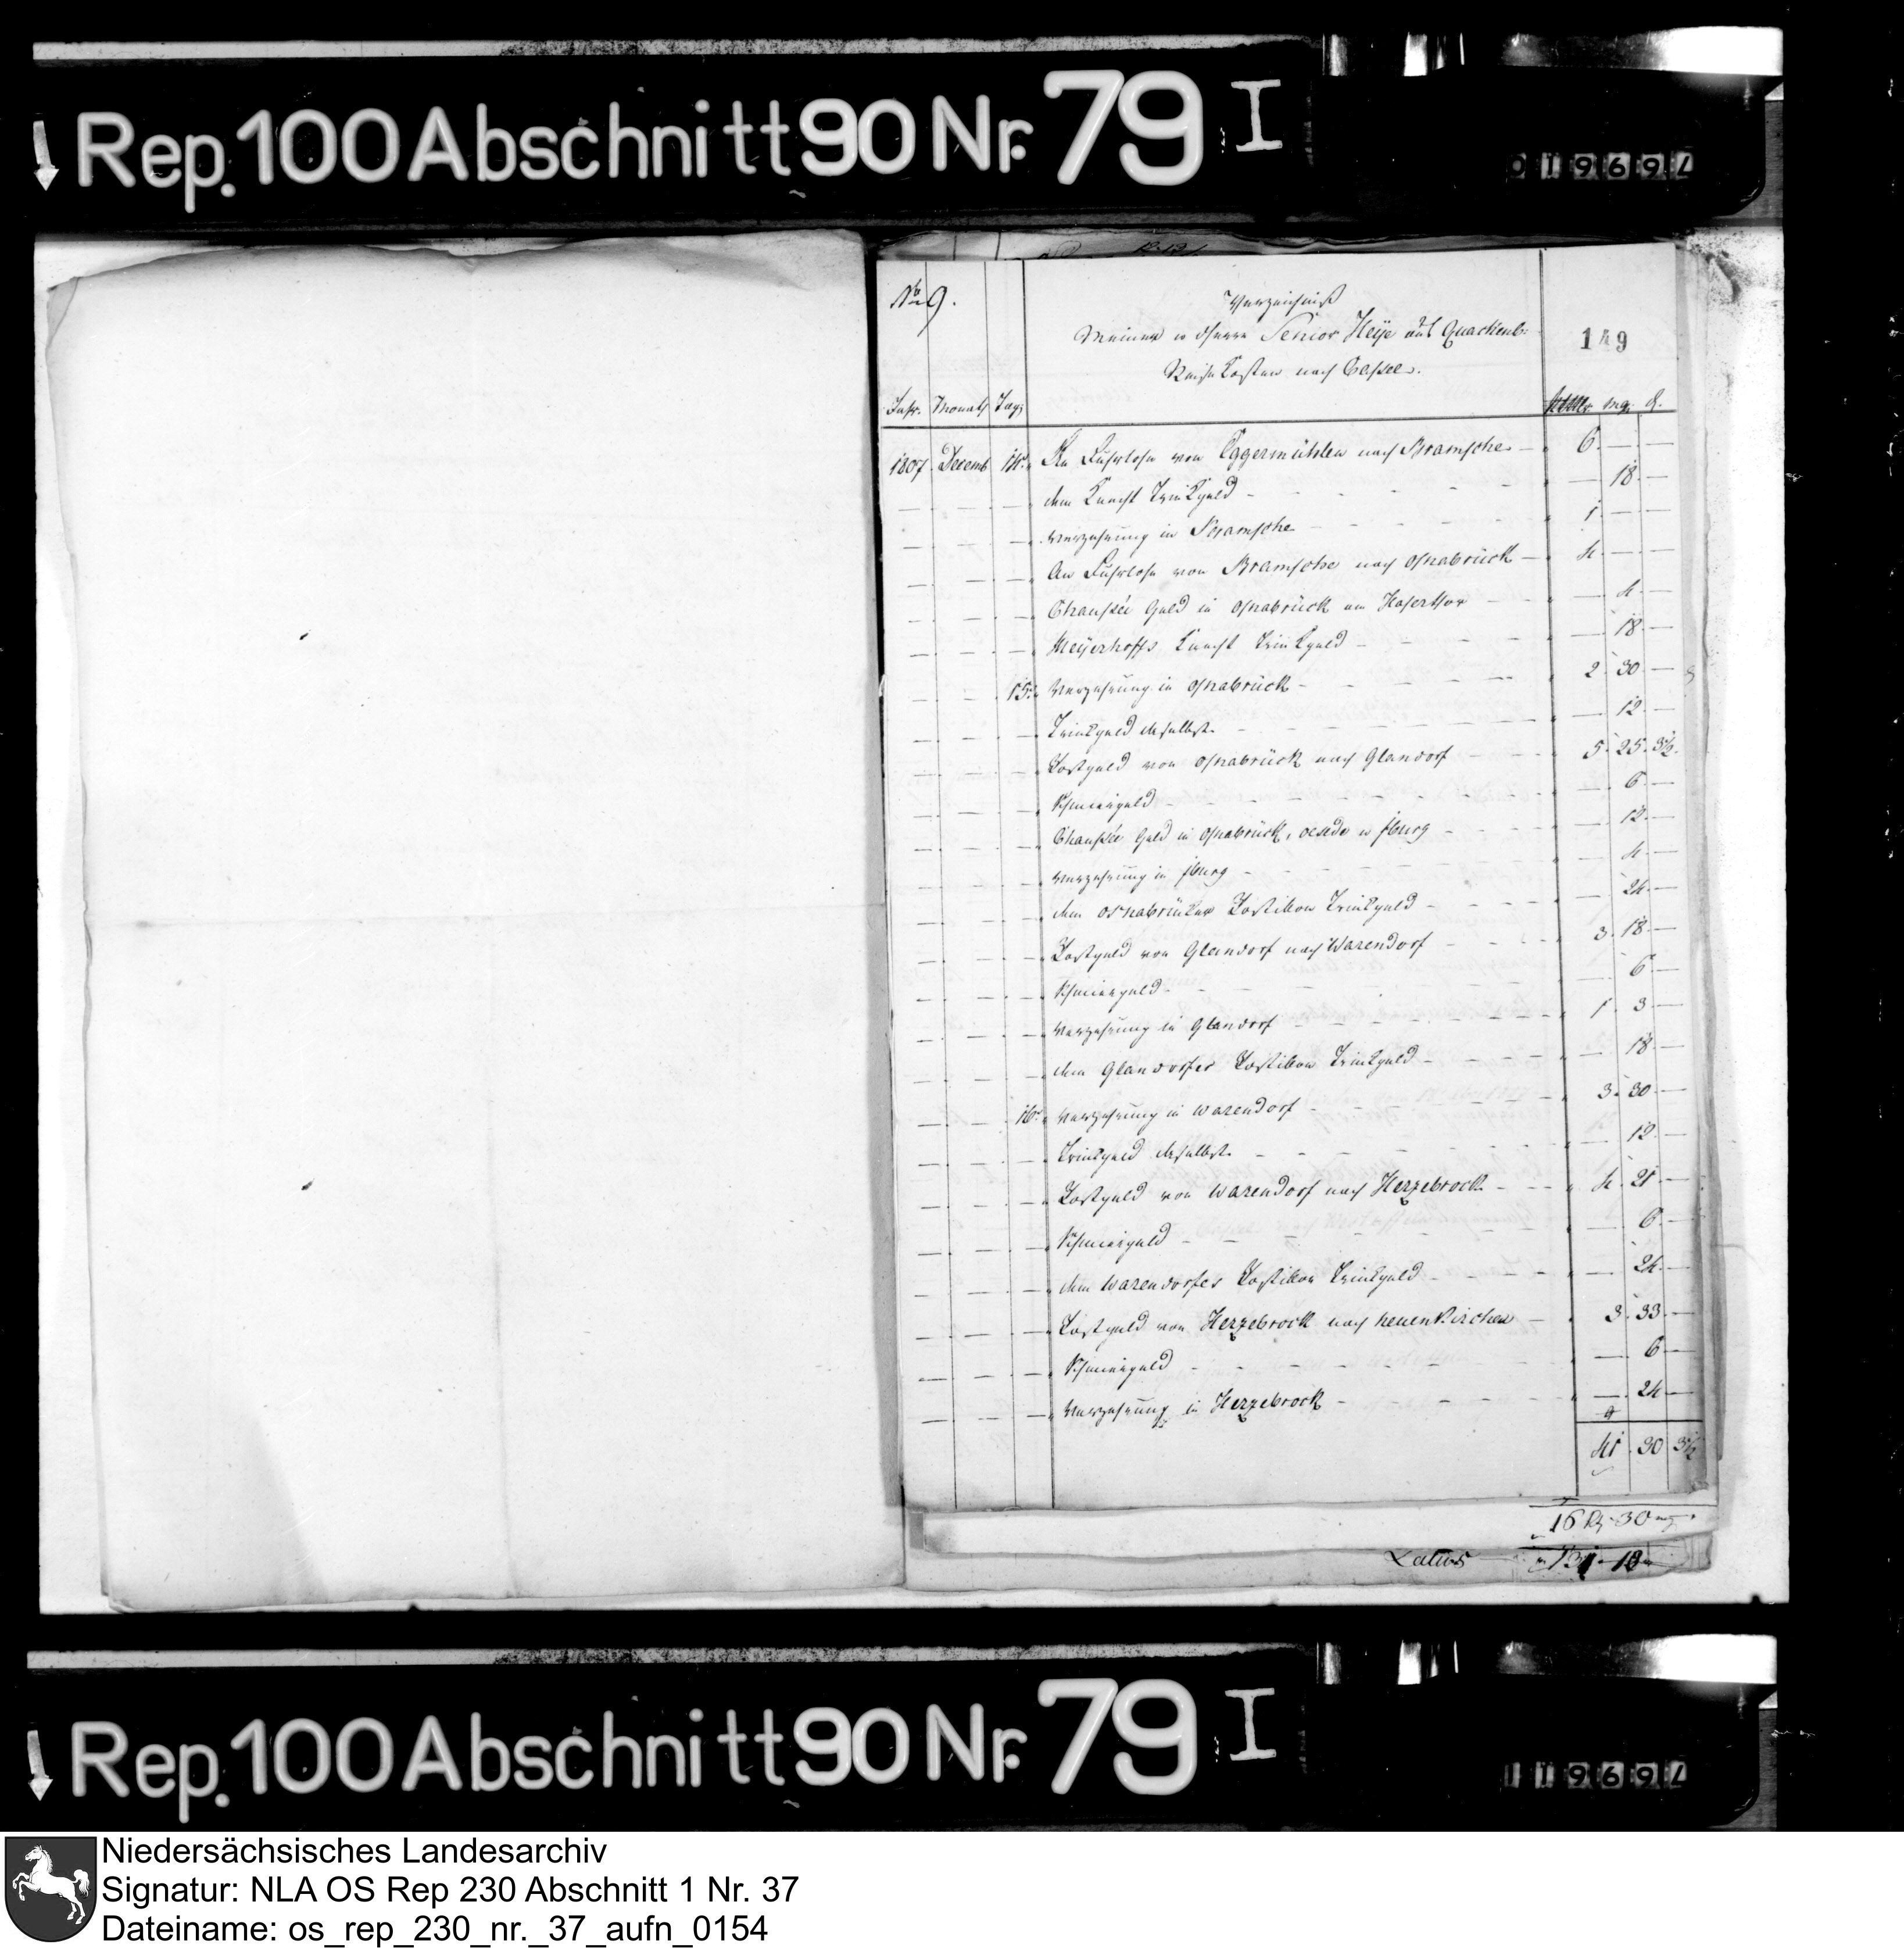 Rep. 100 Abschnitt 90 Nr. 79 I
No 9.
Verzeichniß
Meiner u Herrn Senior Heye aus Quackenb:
Reisekosten nach Cassel.
149
Jahr. Monath Tag. mg. d.
1807. Decemb. 14. An Fuhrlohn von Eggermühlen nach Bramsche 6. — —
dem Knecht Trinkgeld — 18. —
Verzehrung in Bramsche 1. — —
An Fuhrlohn von Bramsche nach Osnabrück 4. — —
Chaussée Geld in Osnabrück am Hasenthor — 4. —
Meyerhoffs Knecht Trinkgeld — 18. —
15. Verzehrung in Osnabrück 2. 30 —
Trinkgeld daselbst. — 12. —
Postgeld von Osnabrück nach Glandorf 5. 25. 3½.
Schmiergeld — 6. —
Chaussée Geld in Osnabrück, Oesede u Iburg — 12. —
Verzehrung in Iburg — 4. —
dem Osnabrücker Postillon Trinkgeld — 24. —
Postgeld von Glandorf nach Warendorf 3. 18. —
Schmiergeld — 6. —
Verzehrung in Glandorf 1. 3. —
dem Glandorfer Postillon Trinkgeld — 18. —
16. Verzehrung in Warendorf 3. 30. —
Trinkgeld daselbst. — 12. —
Postgeld von Warendorf nach Herzebrock 4. 21. —
Schmiergeld — 6. —
dem Warendorfer Postillon Trinkgeld — 24. —
Postgeld von Herzebrock nach Neuenkirchen 3. 33. —
Schmiergeld — 6 —
Verzehrung in Herzebrock — 24 —
41. 30 3½
16 30
Latus
Rep. 100 Abschnitt 90 Nr. 79 I
Niedersächsisches Landesarchiv
Signatur: NLA OS Rep 230 Abschnitt 1 Nr. 37
Dateiname: os_rep_230_nr._37_aufn_0154